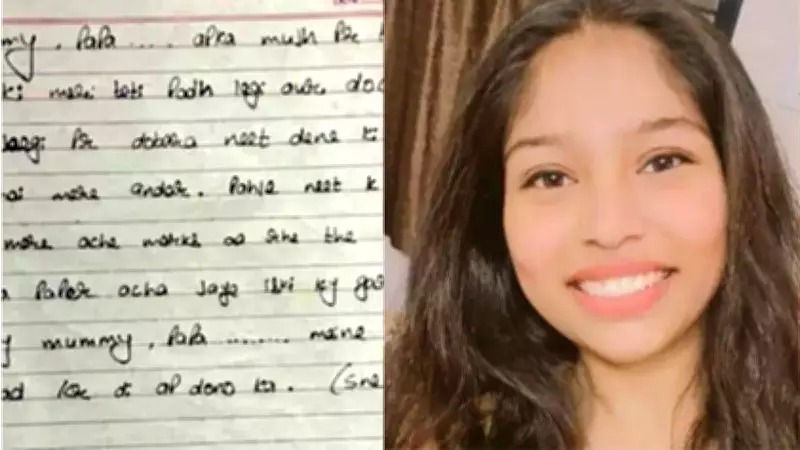 my, Papa .... apka mujh Pr
ki meri beti Padh legi aur doc
Pr dobara neet dene ki
ai mere andar. Pahle neet k
mere ache marks aa rhe the
Paper acha jaye iski ky
y mummy, PaPa ........ maine
ad kr di ap dono ka. (Sne